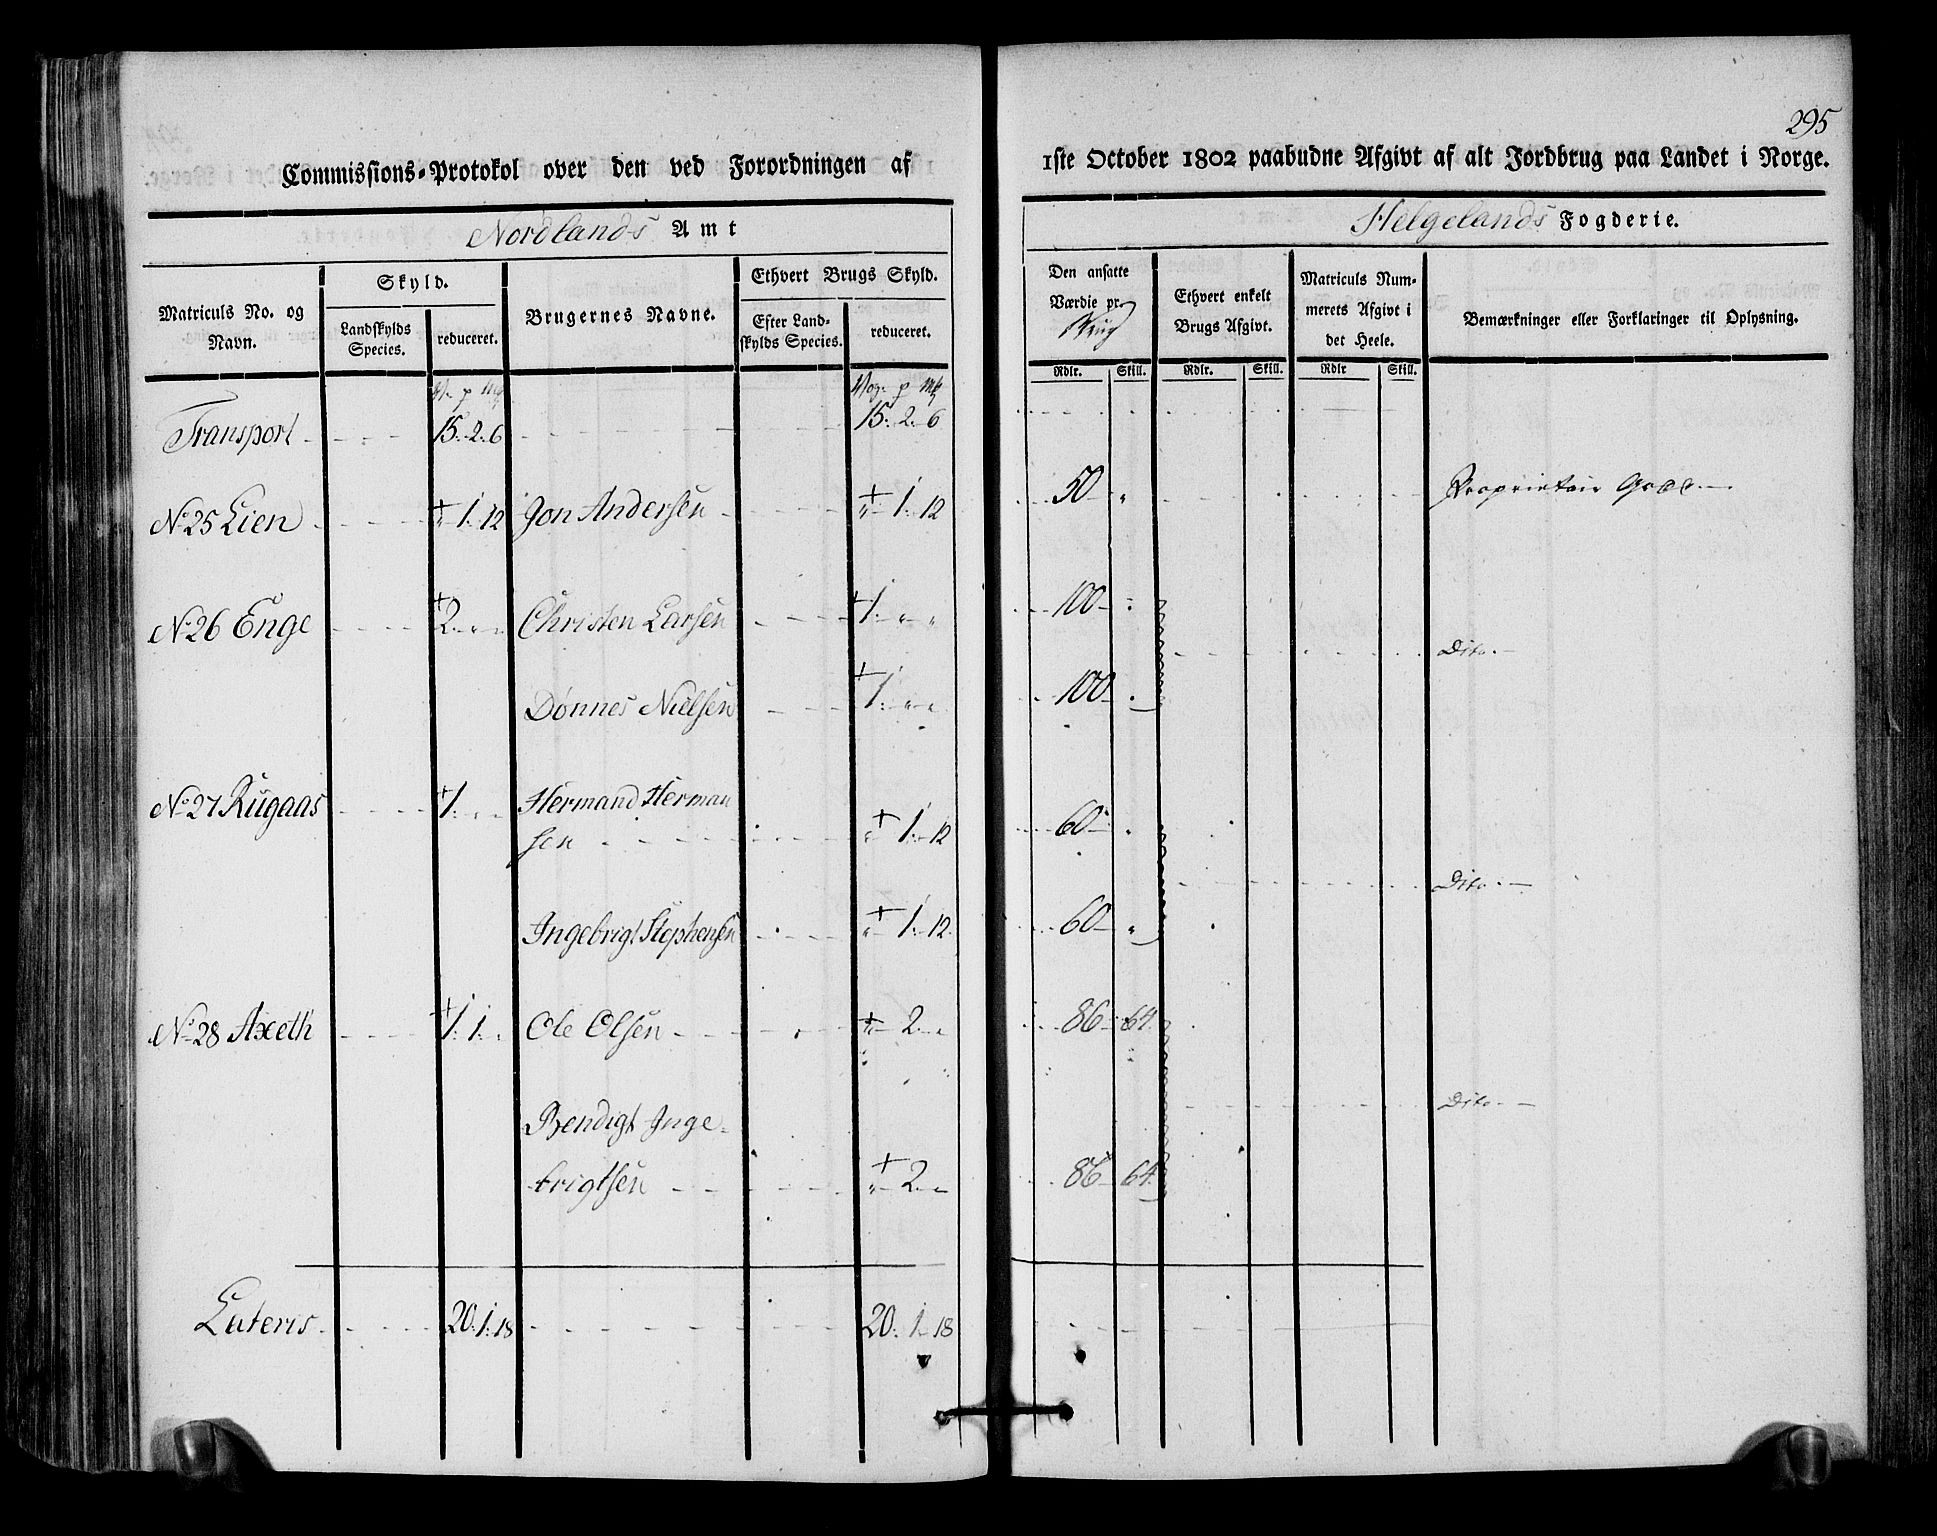 295
Commissions-Protokol over den ved Forordningen af 1ste October 1802 paabudne Afgivt af alt Jordbrug paa Landet i Norge.
Nordlands Amt
Helgelands Fogderie.
Matriculs No. og Navn.
Skyld.
Landskylds Species.
reduceret.
Brugernes Navne.
Ethvert Brugs Skyld.
Efter Landskylds Species.
reduceret.
Den ansatte Værdie pr. Brug
Ethvert enkelt Brugs Afgivt.
Matriculs Nummerets Afgivt i det Heele.
Bemærkninger eller Forklaringer til Oplysning.
Rdlr. Skill. Rdlr. Skill. Rdlr Skill.
Transport 15. 2. 6 15. 2. 6
No 25 Lien " 1. 12 Jon Andersen " 1. 12 50 " Proprietair
No 26 Enge 2. " " Christen Larsen 1. " " 100
Dito.
Dønnes Nielsen 1. " " 100
No 27 Rugaas 1. " " Hermand Herman
sen " 1. 12 60 "
Dito.
Ingebrigt Stephensen " 1. 12 60 "
No 28 Axeth 1. 1. " Ole Olsen " 2. " 86 64
Bendigt Inge- Dito.
brigtsen " 2. " 86 64
Lateris 20. 1. 18 20. 1. 18